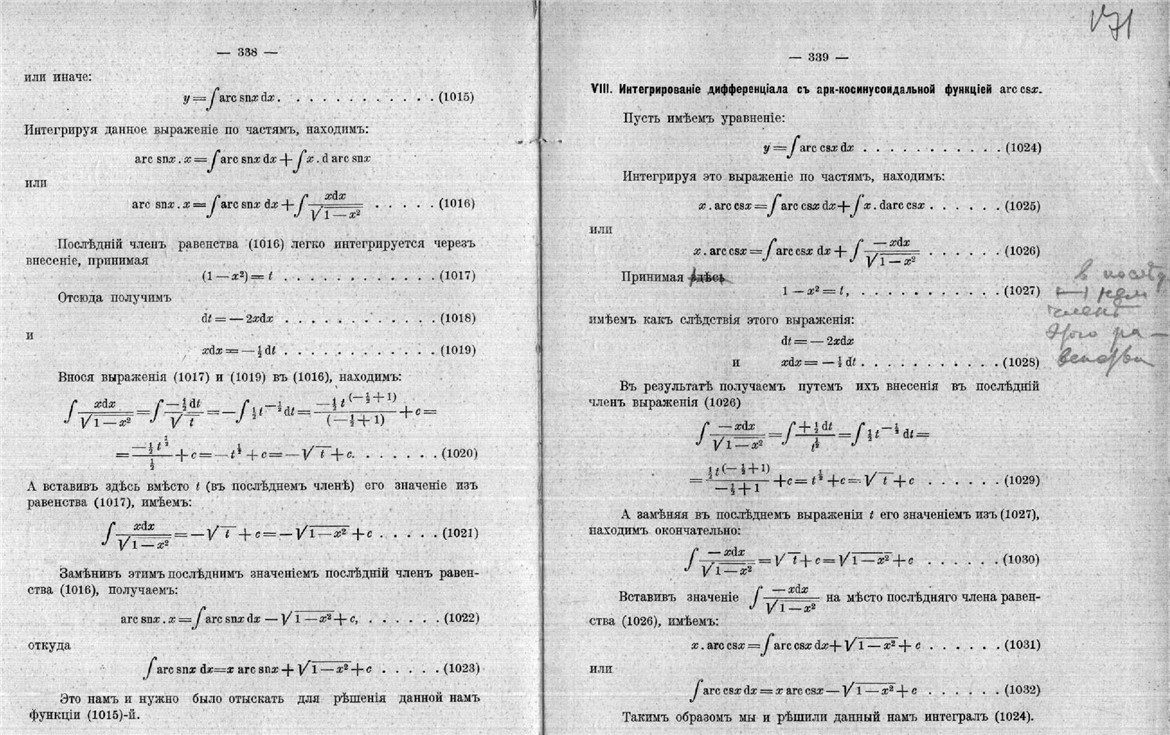 — 338 —
или иначе:
y = ∫ arc snx dx. . . . . . . . . . . . (1015)
Интегрируя данное выраженіе по частямъ, находимъ:
arc snx . x = ∫ arc snx dx + ∫ x . d arc snx
или
arc snx . x = ∫ arc snx dx + ∫ xdx / √1 — x² . . . . . (1016)
Послѣдній членъ равенства (1016) легко интегрируется черезъ
внесеніе, принимая
(1 — x²) = t . . . . . . . . . . . . (1017)
Отсюда получимъ
dt = — 2xdx . . . . . . . . . . . . (1018)
и
xdx = — ½ dt . . . . . . . . . . . . (1019)
Внося выраженія (1017) и (1019) въ (1016), находимъ:
∫ xdx / √1 — x² = ∫ —½ dt / √t = — ∫ ½ t^—½ dt = —½ t^(—½+1) / (—½+1) + c =
= —½ t^½ / ½ + c = — t^½ + c = — √t + c. . . . . . . (1020)
А вставивъ здѣсь вмѣсто t (въ послѣднемъ членѣ) его значеніе изъ
равенства (1017), имѣемъ:
∫ xdx / √1 — x² = — √t + c = — √1 — x² + c . . . . . (1021)
Замѣнивъ этимъ послѣднимъ значеніемъ послѣдній членъ равен-
ства (1016), получаемъ:
arc snx . x = ∫ arc snx dx — √1 — x² + c, . . . . . . (1022)
откуда
∫ arc snx dx = x arc snx + √1 — x² + c . . . . . (1023)
Это намъ и нужно было отыскать для рѣшенія данной намъ
функціи (1015)-й.
— 339 —
VIII. Интегрированіе дифференціала съ арк-косинусоидальной функціей arc csx.
Пусть имѣемъ уравненіе:
y = ∫ arc csx dx . . . . . . . . . . . (1024)
Интегрируя это выраженіе по частямъ, находимъ:
x . arc csx = ∫ arc csx dx + ∫ x . darc csx . . . . . . (1025)
или
x . arc csx = ∫ arc csx dx + ∫ —xdx / √1 — x² . . . . . . (1026)
Принимая здѣсь
1 — x² = t, . . . . . . . . . . . (1027)
в послѣд
членѣ
этого ра-
венства
имѣемъ какъ слѣдствія этого выраженія:
dt = — 2xdx
и xdx = — ½ dt . . . . . . . . . . . (1028)
Въ результатѣ получаемъ путемъ ихъ внесенія въ послѣдній
членъ выраженія (1026)
∫ — xdx / √1 — x² = ∫ + ½ dt / t^½ = ∫ ½ t^—½ dt =
= ½ t^(—½+1) / —½+1 + c = t^½ + c = √t + c . . . . . . (1029)
А замѣняя въ послѣднемъ выраженіи t его значеніемъ изъ (1027),
находимъ окончательно:
∫ — xdx / √1 — x² = √t + c = √1 — x² + c . . . . . . (1030)
Вставивъ значеніе ∫ — xdx / √1 — x² на мѣсто послѣдняго члена равен-
ства (1026), имѣемъ:
x . arc csx = ∫ arc csx dx + √1 — x² + c . . . . . . (1031)
или
∫ arc csx dx = x arc csx — √1 — x² + c . . . . . . (1032)
Такимъ образомъ мы и рѣшили данный намъ интегралъ (1024).